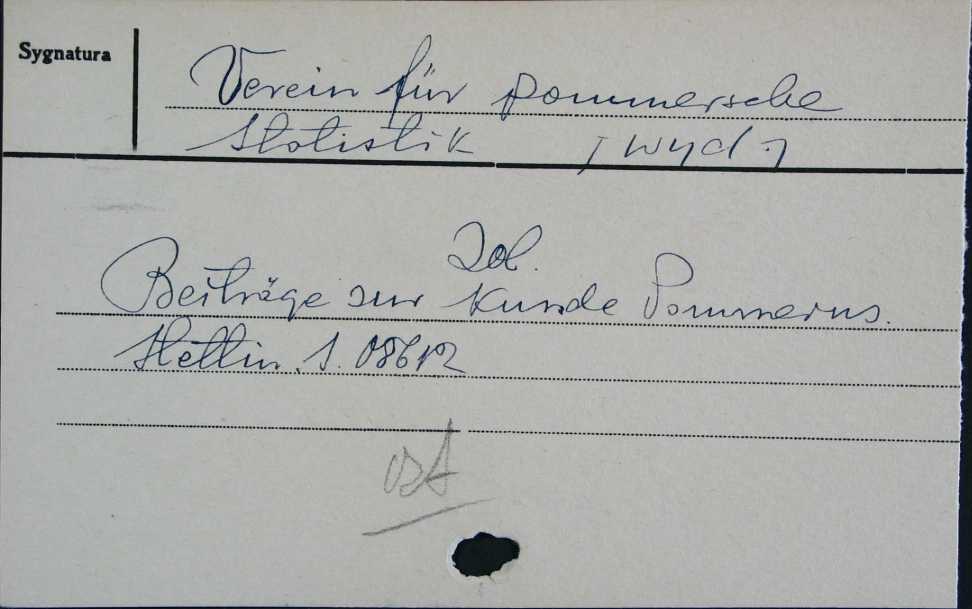 Sygnatura
Verein für pommersche
Statistik [wyd.]
Zob.
Beiträge zur Kunde Pommerns.
Stettin. S. 08612